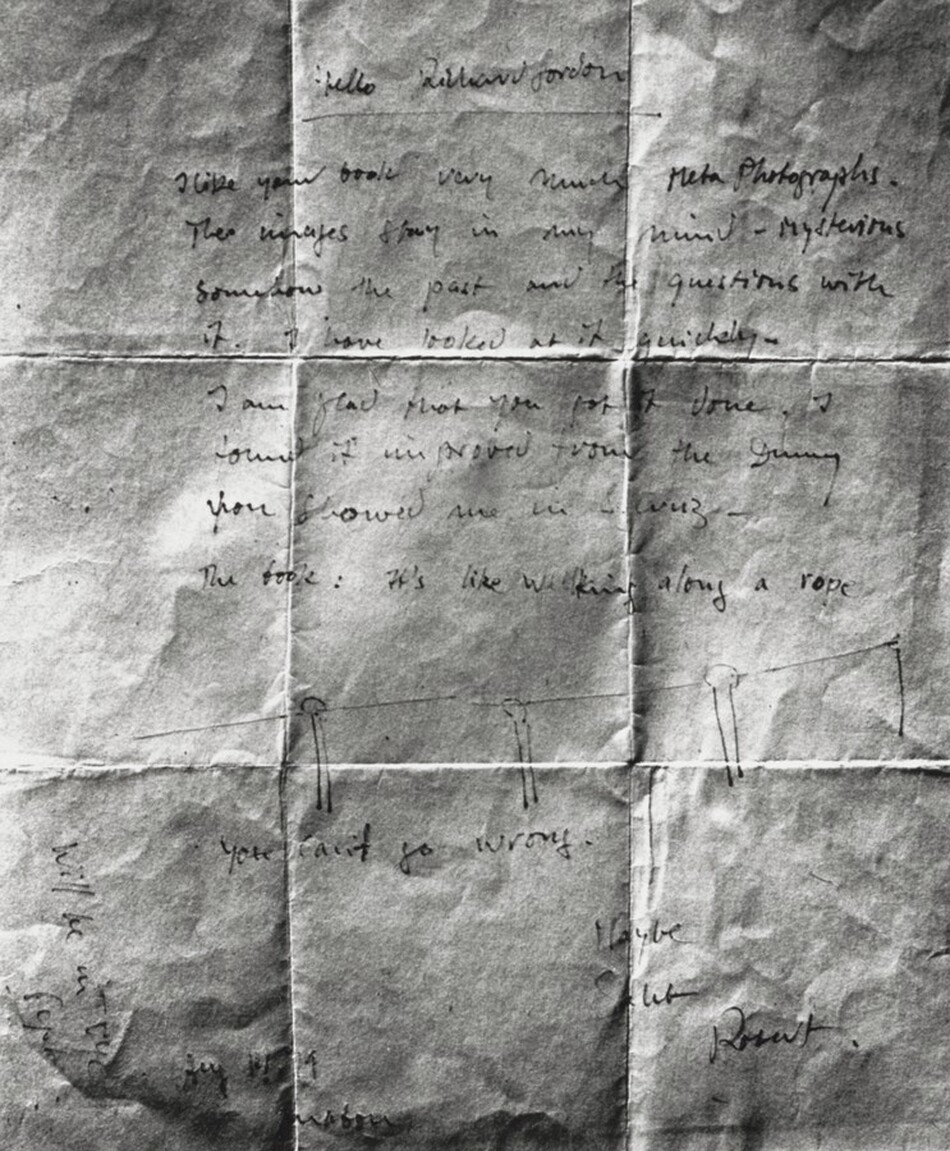 Hello Richard Gordon
I like your book very much Meta Photographs.
The images stay in my mind - mysterious
somehow the past and the questions with
it. I have looked at it quickly -
I am glad that you got it done. I
found it improved from the Dummy
you showed me in
The book: It's like walking along a rope
You can't go wrong.
Maybe
Robert.
will be in